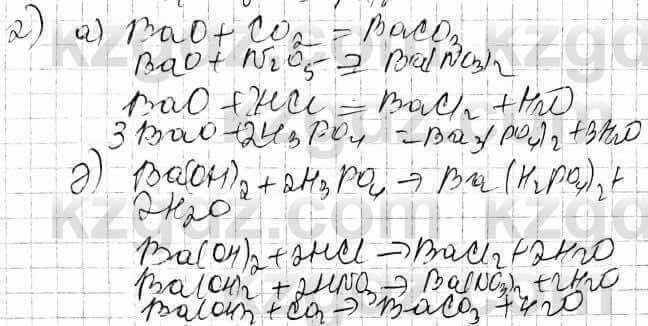 2) а) BaO + CO2 = BaCO3
BaO + N2O5 → Ba(NO3)2
BaO + 2HCl = BaCl2 + H2O
3BaO + 2H3PO4 = Ba3(PO4)2 + 3H2O
д) Ba(OH)2 + 2H3PO4 → Ba(H2PO4)2 +
2H2O
Ba(OH)2 + 2HCl → BaCl2 + 2H2O
Ba(OH)2 + 2HNO3 → Ba(NO3)2 + 2H2O
Ba(OH)2 + CO2 → BaCO3 + H2O